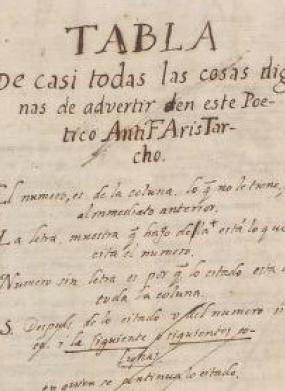 TABLA
De casi todas las cosas dig
nas de advertir en este Poe-
tico AntiFArisTar-
cho.
El numero, es de la coluna. lo q̃ no le tiene,
al immediato anterior.
La letra, muestra q̃ bajo della está lo que
cita el numero.
Numero sin letra es por q̃ lo citado está
toda la coluna.
S. Despues de lo citado del numero
la siguiente siguientes co-
lunas
en quien se continua lo citado.